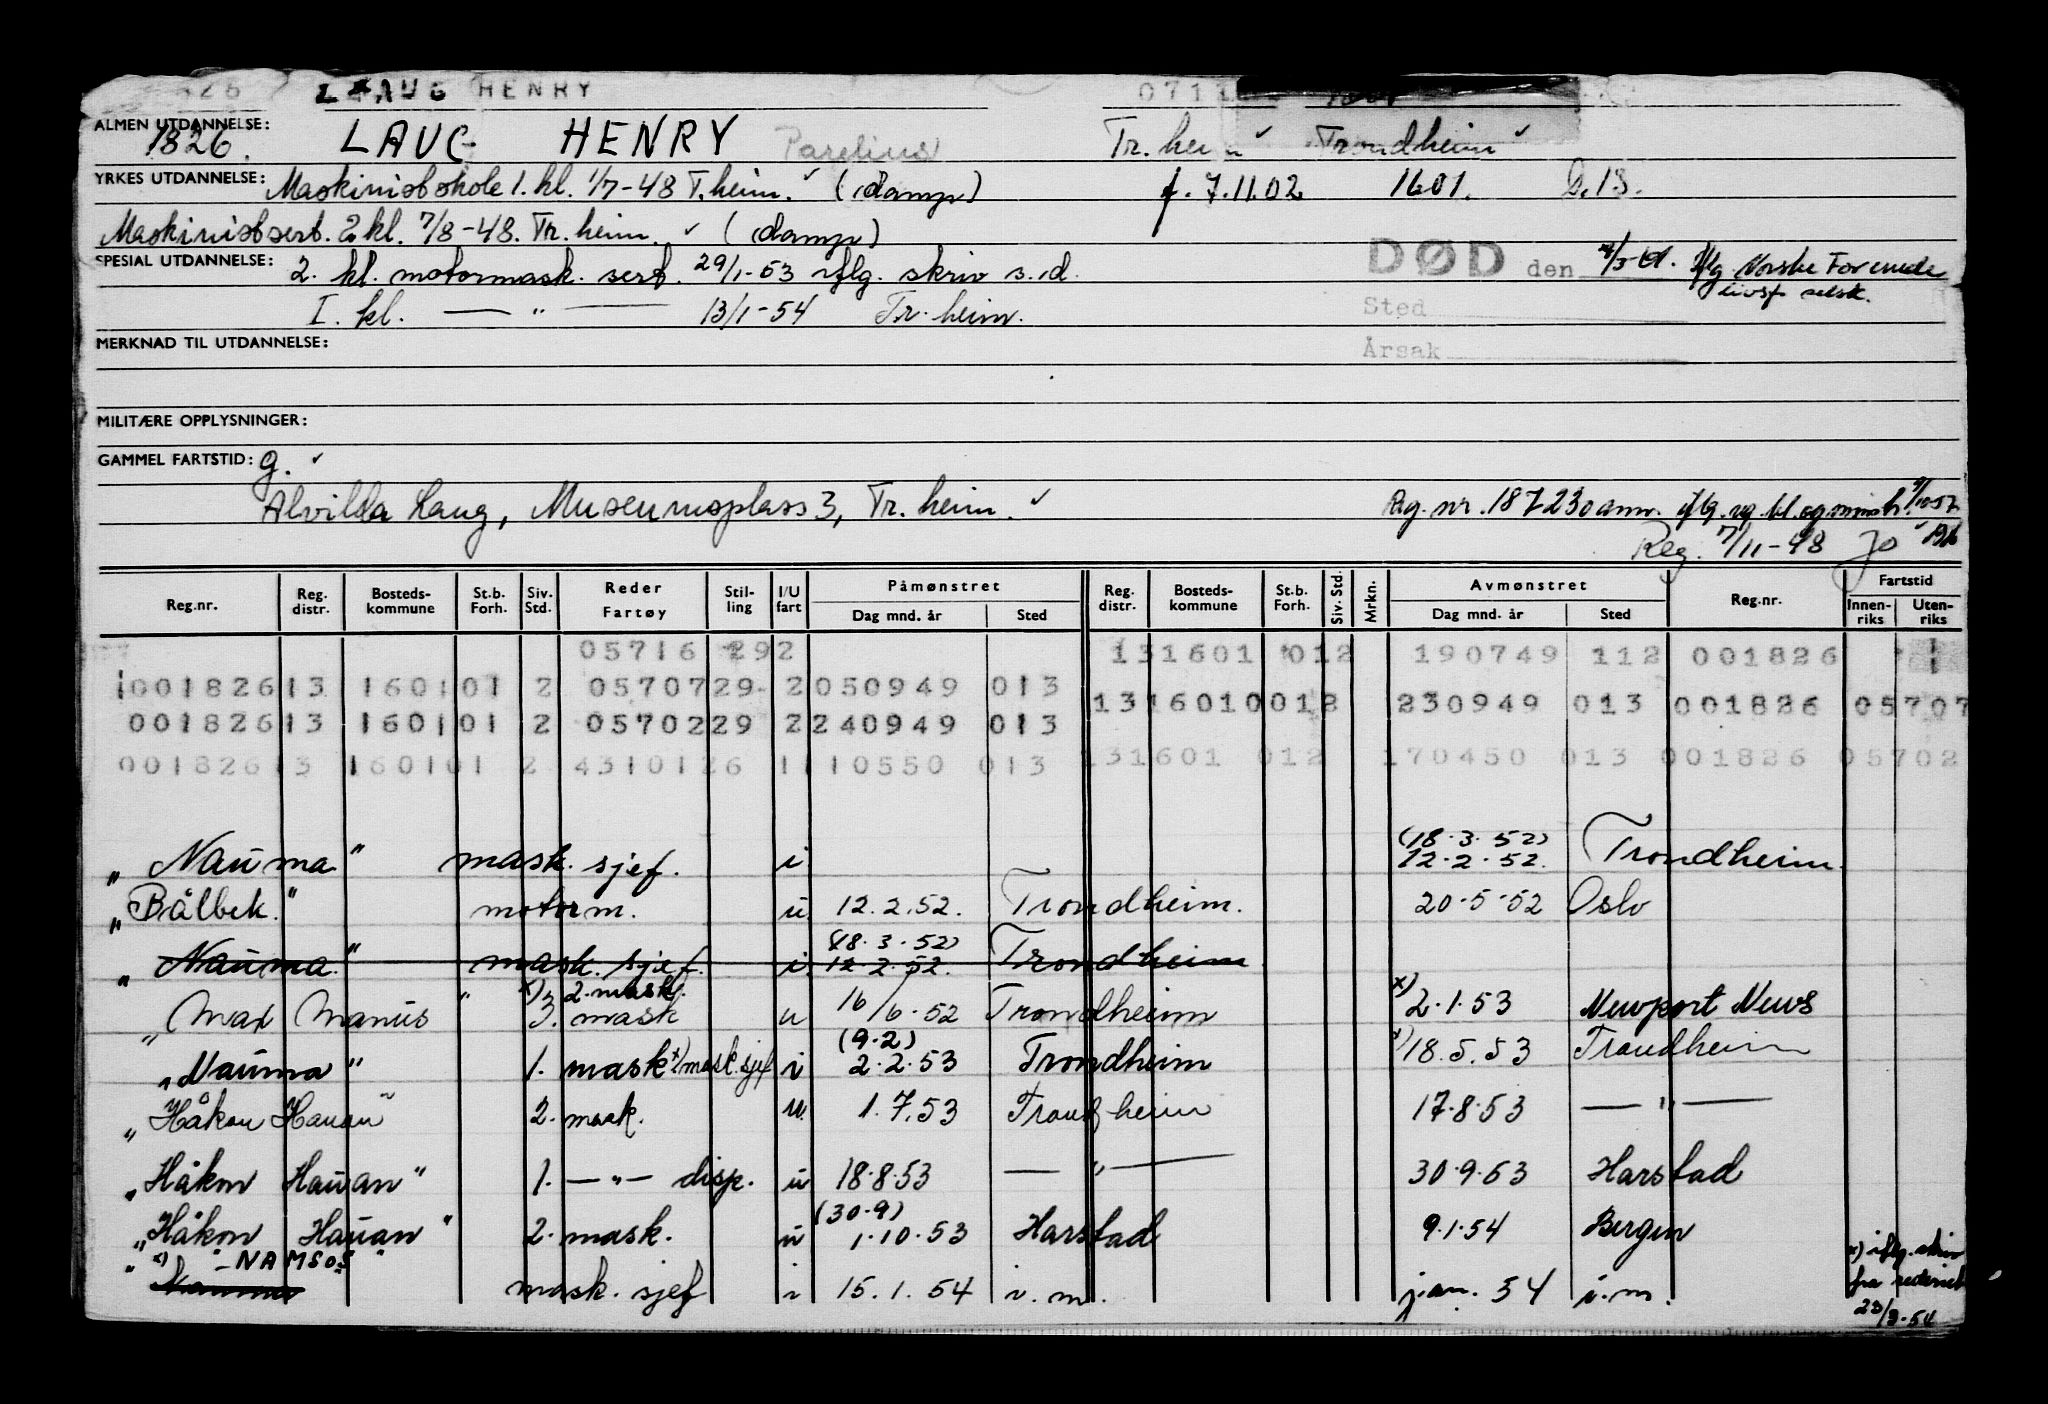 LAUG HENRY 0711
ALMEN UTDANNELSE:
1826. LAUG HENRY Parelius Tr.heim ✓ Trondheim ✓
YRKES UTDANNELSE: Maskinistskole 1. kl. 1/7-48 T.heim. ✓ (damp) f. 7.11.02 1601. D.13.
Maskinistsert. 2 kl. 7/8-48. Tr.heim. ✓ (damp)
SPESIAL UTDANNELSE: 2. kl. motormask. sert. 29/1-53 iflg. skriv s.d. DØD den Iflg. Norske Forenede
livsf. selsk.
I. kl. — " — 13/1-54 Tr.heim. Sted
MERKNAD TIL UTDANNELSE: Årsak
MILITÆRE OPPLYSNINGER:
GAMMEL FARTSTID: g. ✓
Alvilda Laug, Museumsplass 3, Tr.heim. ✓ Rg. nr. 187230 ann. iflg.
Reg. 7/11-48 Jo ✓
Reg.nr. Reg. distr. Bosteds-kommune St.b. Forh. Siv. Std. Reder Fartøy Stil-ling I/U fart Påmønstret Dag mnd. år Sted Reg. distr. Bosteds-kommune St.b. Forh. Siv. Std. Mrkn. Avmønstret Dag mnd. år Sted Reg.nr. Fartstid Innen-riks Uten-riks
05716 292 131601 012 190749 112 001826 1
00182613 160101 2 0570729 2050949 013 1316010012 230949 013 001826 05707
00182613 160101 2 0570229 2240949 013
00182613 160101 2 4310126 1110550 013 131601 012 170450 013 001826 05702
" Nauma " mask. sjef. i (18.3.52) 12.2.52. Trondheim.
" Bålbek. " motorm. u 12.2.52. Trondheim. 20.5.52 Oslo
" Nauma " mask. sjef. i (18.3.52) 12.2.52. Trondheim
" Max Manus " x) 2. mask. 3. mask u 16/6.52 Trondheim x) 2.1.53 Newport News
" Nauma " 1. mask x) mask. sjef i (9.2) 2.2.53 Trondheim x) 18.5.53 Trondheim
" Håkon Hauan " 2. mask. u. 1.7.53 Trondheim 17.8.53 — " —
" Håkon Hauan " 1. — " — disp. u 18.8.53 — " — 30.9.53 Harstad
" Håkon Hauan " 2. mask. u (30.9) 1.10.53 Harstad 9.1.54 Bergen
" x) - NAMSOS " x) iflg. skriv
Nauma mask. sjef i 15.1.54 i.m. jan. 54 i.m. fra rederiet
23/3-54